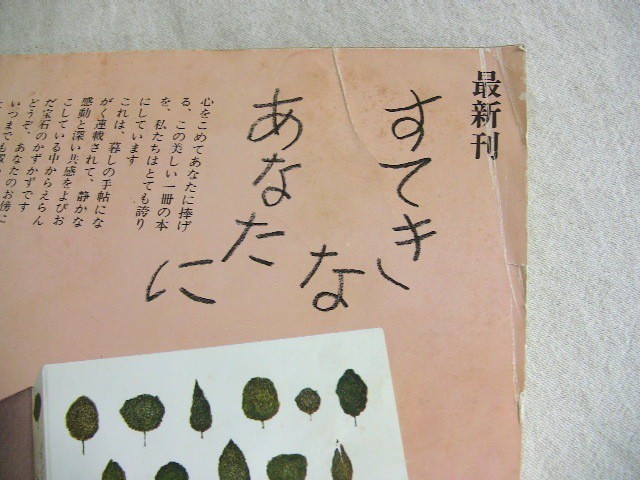 最新刊
すてきな
あなたに
心をこめてあなたに捧げ
る、この美しい一冊の本
を、私たちはとても誇り
にしています
これは、暮しの手帖にな
がく連載されて、静かな
感動と深い共感をよびお
こしている中からえらん
だ宝石のかずかずです
どうぞ、あなたのお傍に
いつまでも